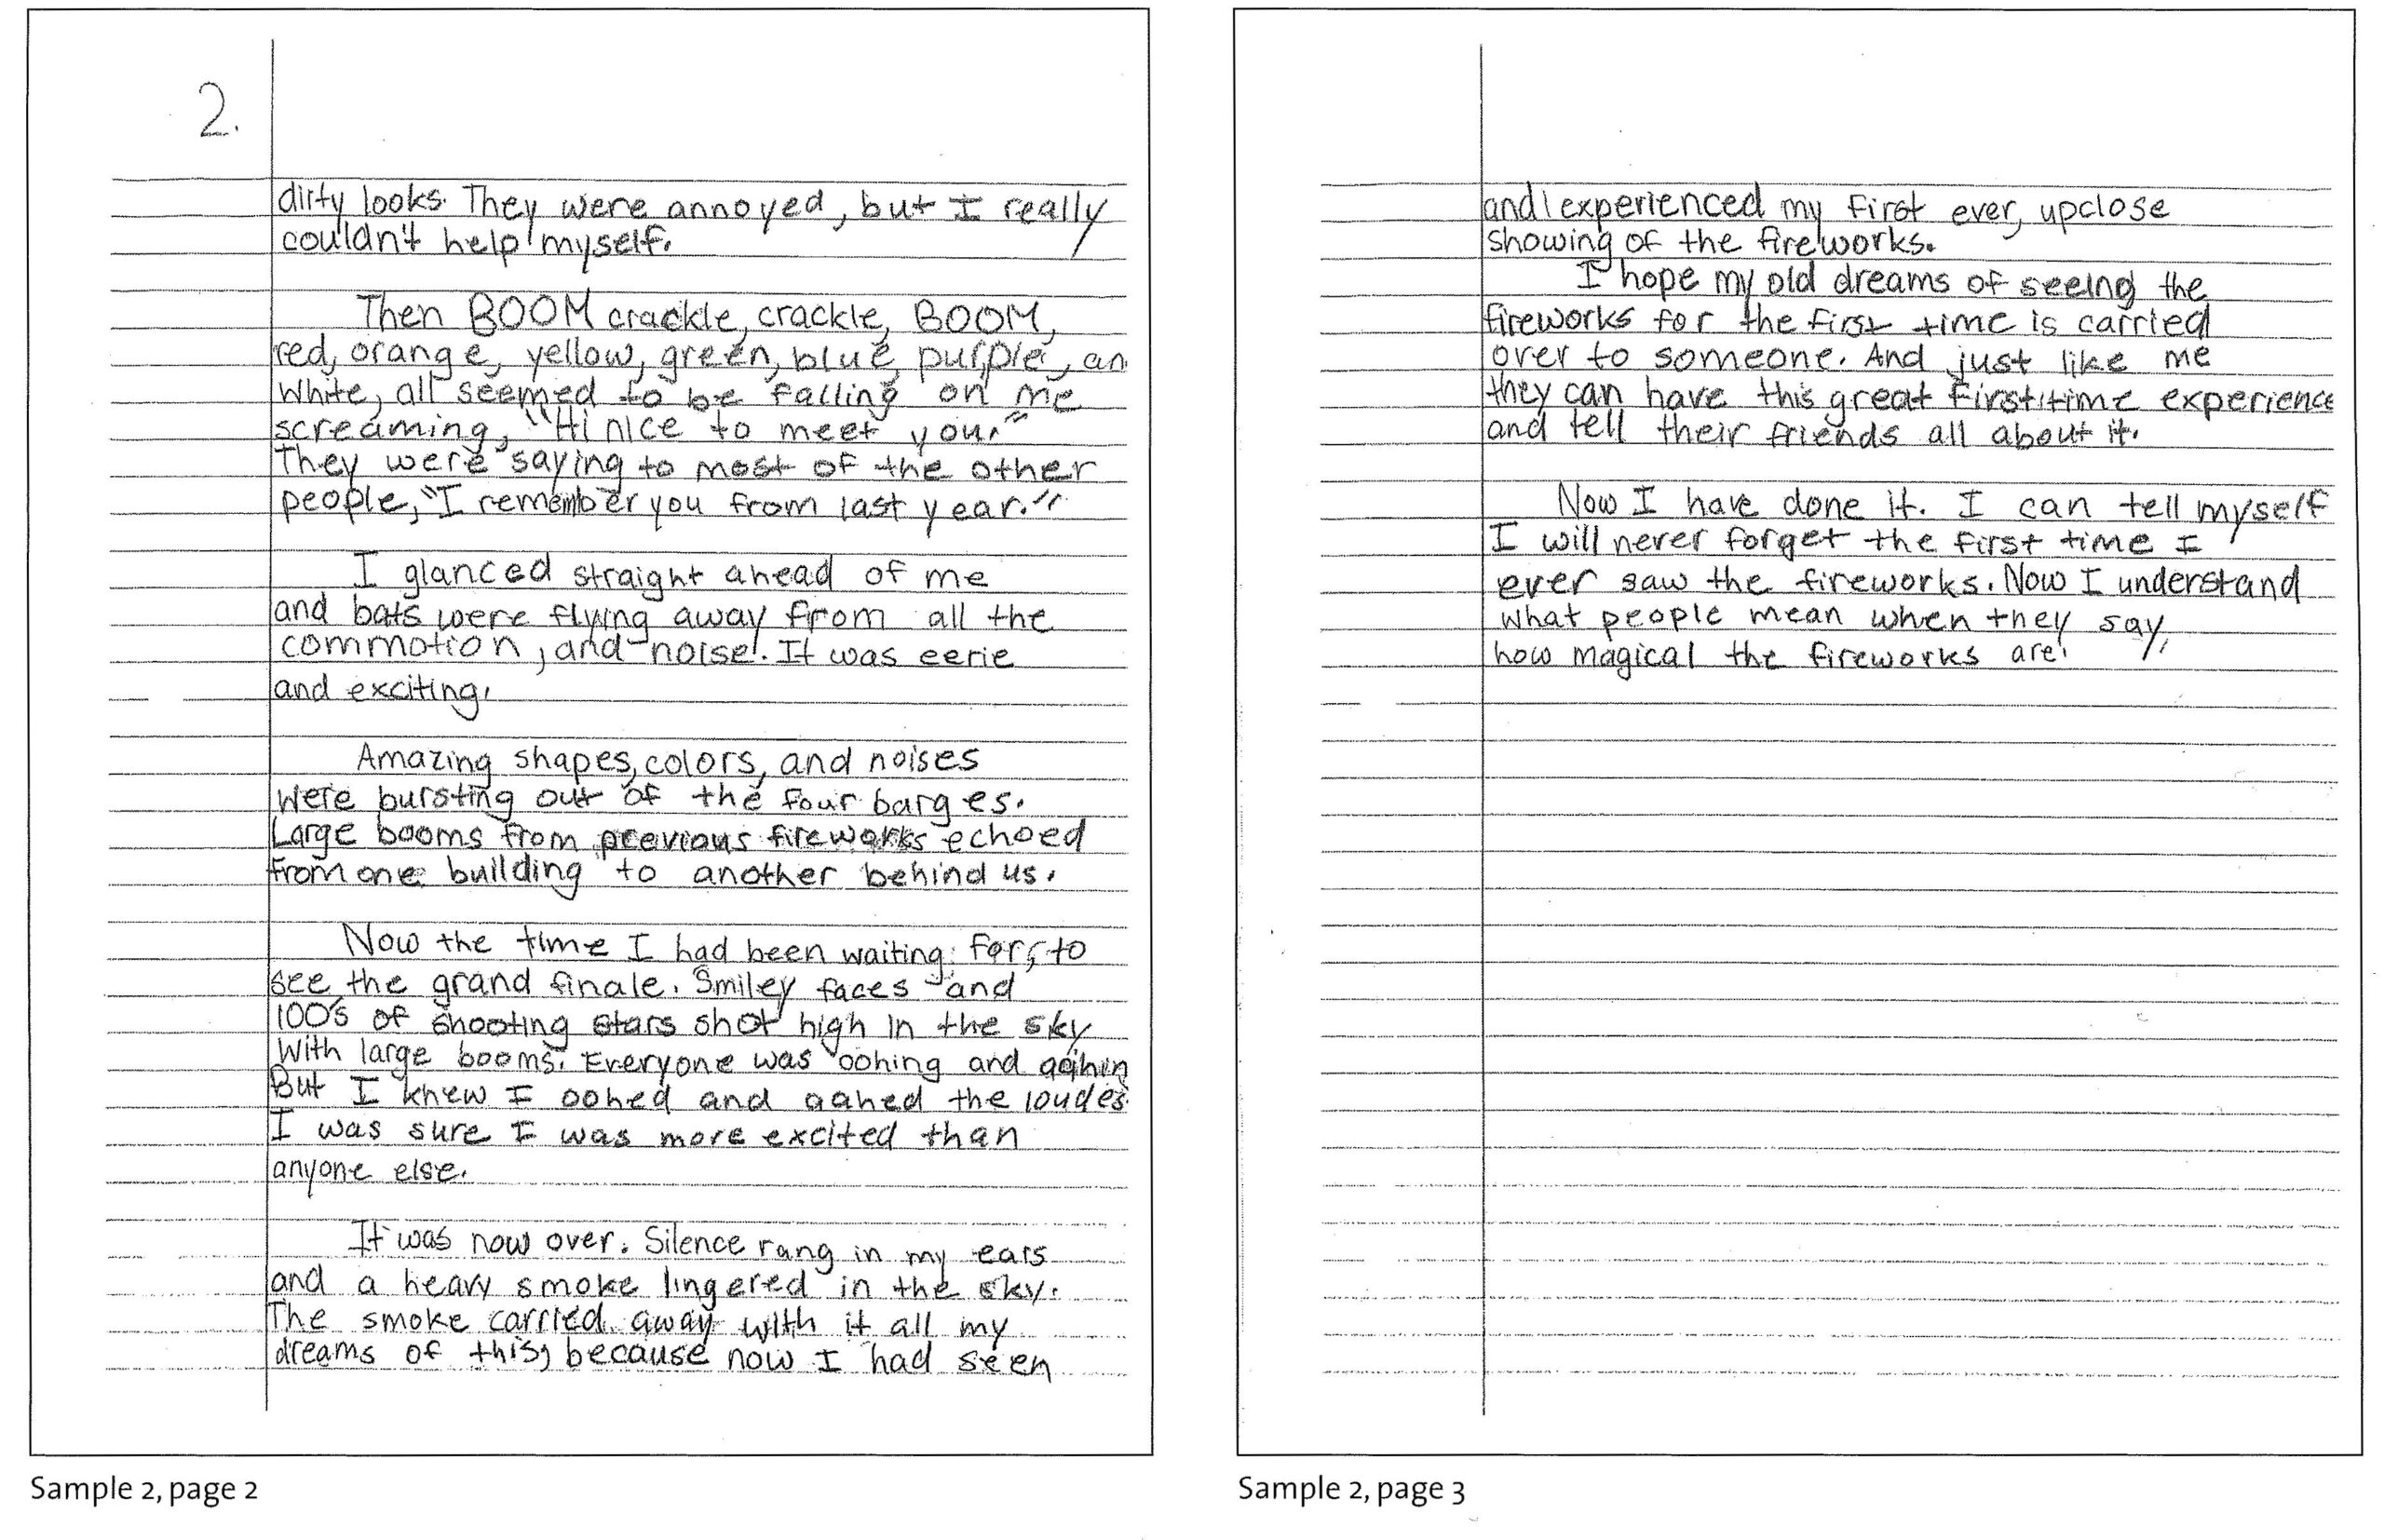 2.
dirty looks. They were annoyed, but I really
couldn't help myself.
Then BOOM crackle, crackle, BOOM,
red, orange, yellow, green, blue, purple, an
white, all seemed to be falling on me
screaming, "Hi nice to meet you."
They were saying to most of the other
people, "I remember you from last year."
I glanced straight ahead of me
and bats were flying away from all the
commotion, and noise. It was eerie
and exciting.
Amazing shapes, colors, and noises
were bursting out of the four barges.
Large booms from previous fireworks echoed
from one building to another behind us.
Now the time I had been waiting for, to
see the grand finale. Smiley faces and
100's of shooting stars shot high in the sky
with large booms. Everyone was oohing and aahin
But I knew I oohed and aahed the loudes
I was sure I was more excited than
anyone else.
It was now over. Silence rang in my ears
and a heavy smoke lingered in the sky.
The smoke carried away with it all my
dreams of this, because now I had seen
Sample 2, page 2
and experienced my first ever, upclose
showing of the fireworks.
I hope my old dreams of seeing the
fireworks for the first time is carried
over to someone. And just like me
they can have this great first time experience
and tell their friends all about it.
Now I have done it. I can tell myself
I will never forget the first time I
ever saw the fireworks. Now I understand
what people mean when they say,
how magical the fireworks are!
Sample 2, page 3